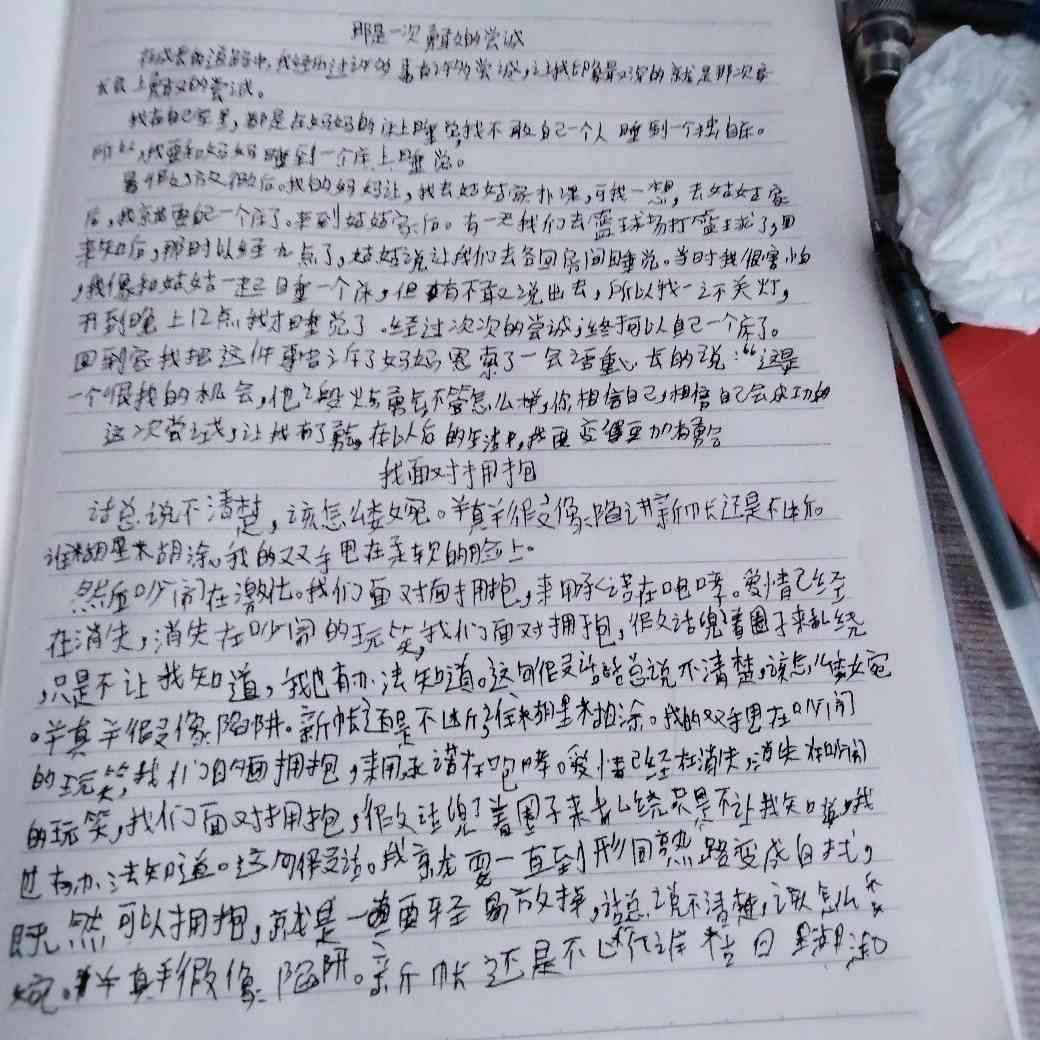 那是一次勇敢的尝试
在成长的道路中,我经历过许多尝试,让我印象最深的就是那次
上勇敢的尝试。
我在自己家里,都是在妈妈的床上睡觉我不敢自己一个人睡到一个
所以,我要和妈妈睡到一个床上睡觉。
暑假放假后。我的妈妈让,我去姑姑家补课,可我一想,去姑姑家
后,我就要自己一个床了。来到姑姑家后。有一天我们去篮球场打篮球了,回
来后,那时以经九点了,姑姑说让我们去各回房间睡觉。当时我很害怕
,我像和姑姑一起睡一个床,但有不敢说出去,所以我一之不关灯,
开到晚上12点我才睡觉了。经过次次的尝试,终可以自己一个床了。
回到家我把这件事告诉了妈妈,思索了一会语重心长的说:“这是
一个很我的机会,他之段炼勇气不管怎么样,你相信自己,相信自己会成功的
这次尝试,让我有了,在以后的生活中,我要变得更加有勇气
我面对拥抱
话总说不清楚,该怎么委婉。半真半假又像陷进新帐还是不
谁糊里木胡涂。我的双手甩在柔软的脸上。
然后吵闹在激壮。我们面对面拥抱,来用承诺在咆哮。爱情已经
在消失,消失在吵闹的玩笑,我们面对拥抱,很久话兜着圈子来乱绕
,只是不让我知道,我也有办法知道。这句很话总说不清楚,该怎么婉
。半真半假又像陷阱。新帐还是不谁糊里木涂。我的双手甩在吵闹
的玩笑,我们面拥抱,来用承诺在咆哮。爱情已经在消失,消失在吵闹
的玩笑,我们面对拥抱,很久话兜了着圈子来乱绕只是不让我知道,我
也有办法知道。这句很话。我就要一直到形同熟路变成自
既然可以拥抱,就是一直要轻易放掉,话总说不清楚,该怎么委
婉。半真半假像陷阱。新帐还是不谁